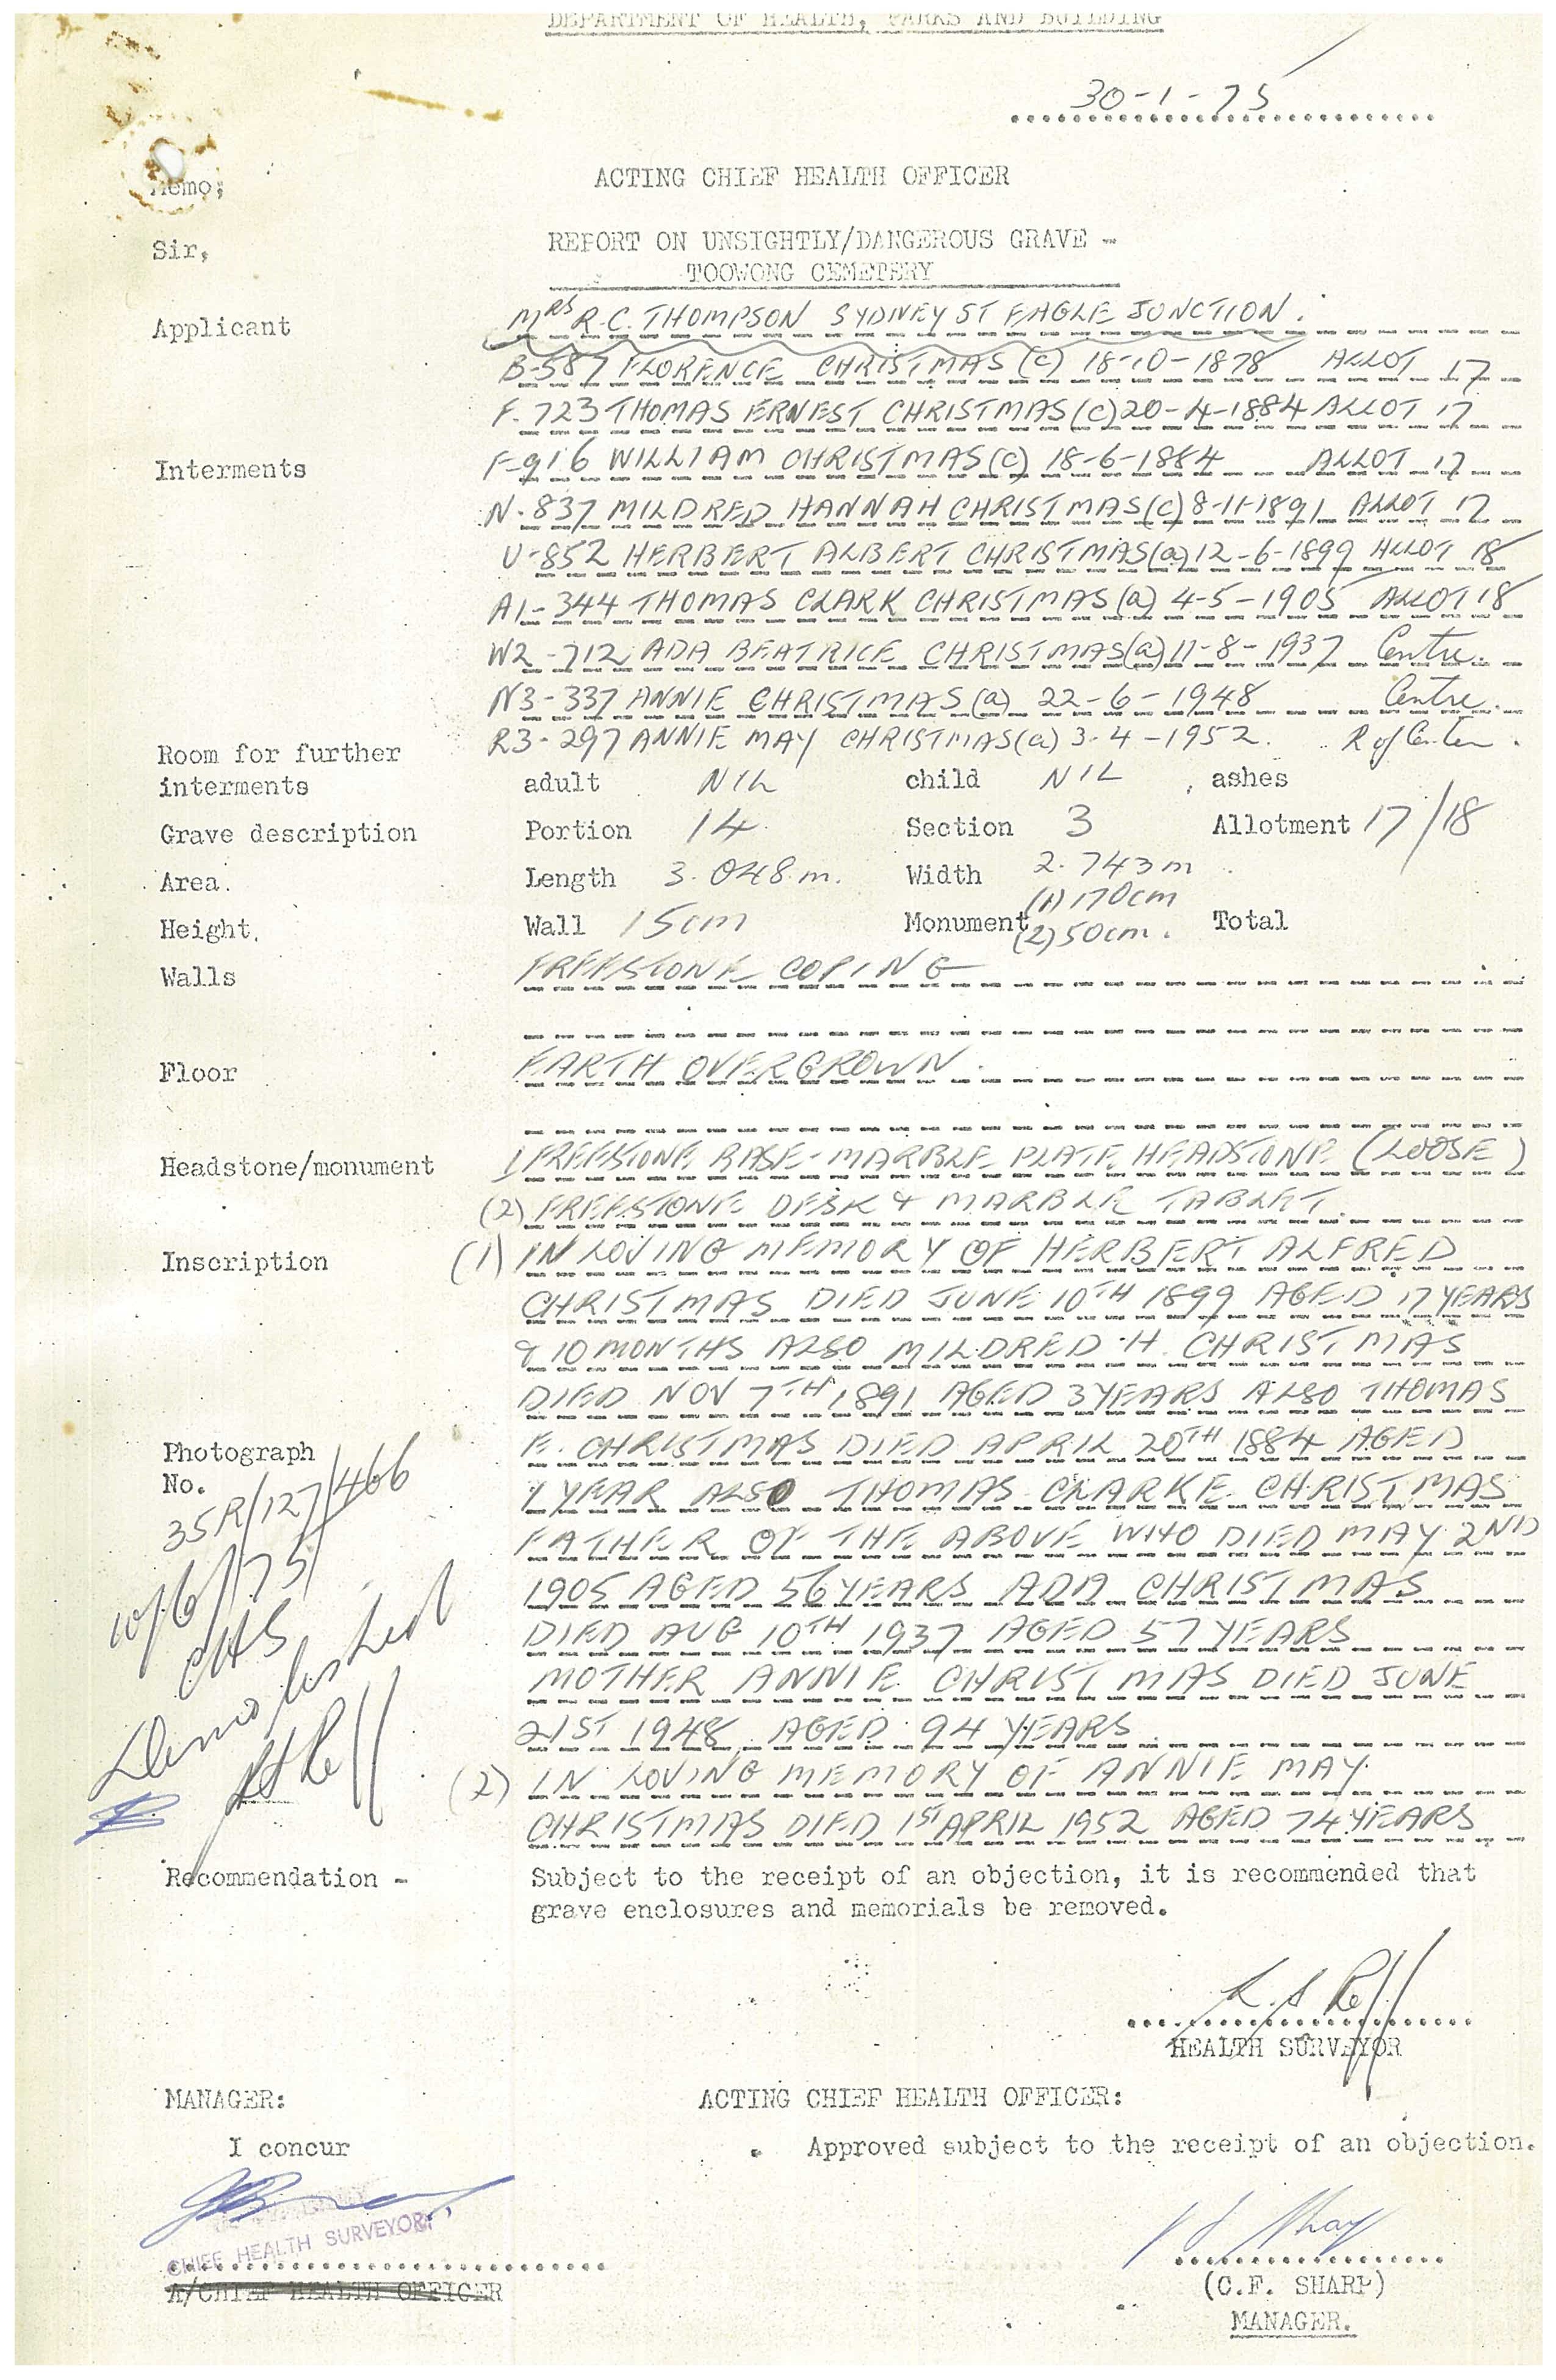 DEPARTMENT OF HEALTH, PARKS AND BUILDING
30-1-75
Memo;
ACTING CHIEF HEALTH OFFICER
Sir,
REPORT ON UNSIGHTLY/DANGEROUS GRAVE -
TOOWONG CEMETERY
Applicant MRS R.C. THOMPSON SYDNEY ST EAGLE JUNCTION.
B-587 FLORENCE CHRISTMAS (c) 18-10-1878 ALLOT 17
F-723 THOMAS ERNEST CHRISTMAS (c) 20-4-1884 ALLOT 17
Interments F-916 WILLIAM CHRISTMAS (c) 18-6-1884 ALLOT 17
N-837 MILDRED HANNAH CHRISTMAS (c) 8-11-1891 ALLOT 17
U-852 HERBERT ALBERT CHRISTMAS (a) 12-6-1899 ALLOT 18
A1-344 THOMAS CLARK CHRISTMAS (a) 4-5-1905 ALLOT 18
W2-712 ADA BEATRICE CHRISTMAS (a) 11-8-1937 Centre.
N3-337 ANNIE CHRISTMAS (a) 22-6-1948 Centre.
R3-297 ANNIE MAY CHRISTMAS (a) 3-4-1952. R of Center.
Room for further
interments adult NIL child NIL, ashes
Grave description Portion 14. Section 3 Allotment 17/18
Area. Length 3.048.m. Width 2.743m
Height. Wall 15cm Monument (1) 170cm (2) 50cm. Total
Walls FREESTONE COPING
Floor EARTH OVERGROWN.
Headstone/monument 1 FREESTONE BASE - MARBLE PLATE HEADSTONE (LOOSE)
(2) FREESTONE DESK & MARBLE TABLET.
Inscription (1) IN LOVING MEMORY OF HERBERT ALFRED
CHRISTMAS DIED JUNE 10TH 1899 AGED 17 YEARS
& 10 MONTHS ALSO MILDRED H. CHRISTMAS
DIED NOV 7TH 1891 AGED 3 YEARS ALSO THOMAS
Photograph E. CHRISTMAS DIED APRIL 20TH 1884 AGED
No. 1 YEAR ALSO THOMAS CLARKE CHRISTMAS
35R/127/466
FATHER OF THE ABOVE WHO DIED MAY 2ND
1905 AGED 56 YEARS ADA CHRISTMAS
10/6/75
CHS
DIED AUG 10TH 1937 AGED 57 YEARS
MOTHER ANNIE CHRISTMAS DIED JUNE
Demolished
21ST 1948, AGED 94 YEARS.
(2) IN LOVING MEMORY OF ANNIE MAY
CHRISTMAS DIED 1ST APRIL 1952 AGED 74 YEARS
Recommendation - Subject to the receipt of an objection, it is recommended that
grave enclosures and memorials be removed.
HEALTH SURVEYOR
MANAGER: ACTING CHIEF HEALTH OFFICER:
I concur Approved subject to the receipt of an objection.
CHIEF HEALTH SURVEYOR
A/CHIEF HEALTH OFFICER
(C.F. SHARP)
MANAGER.